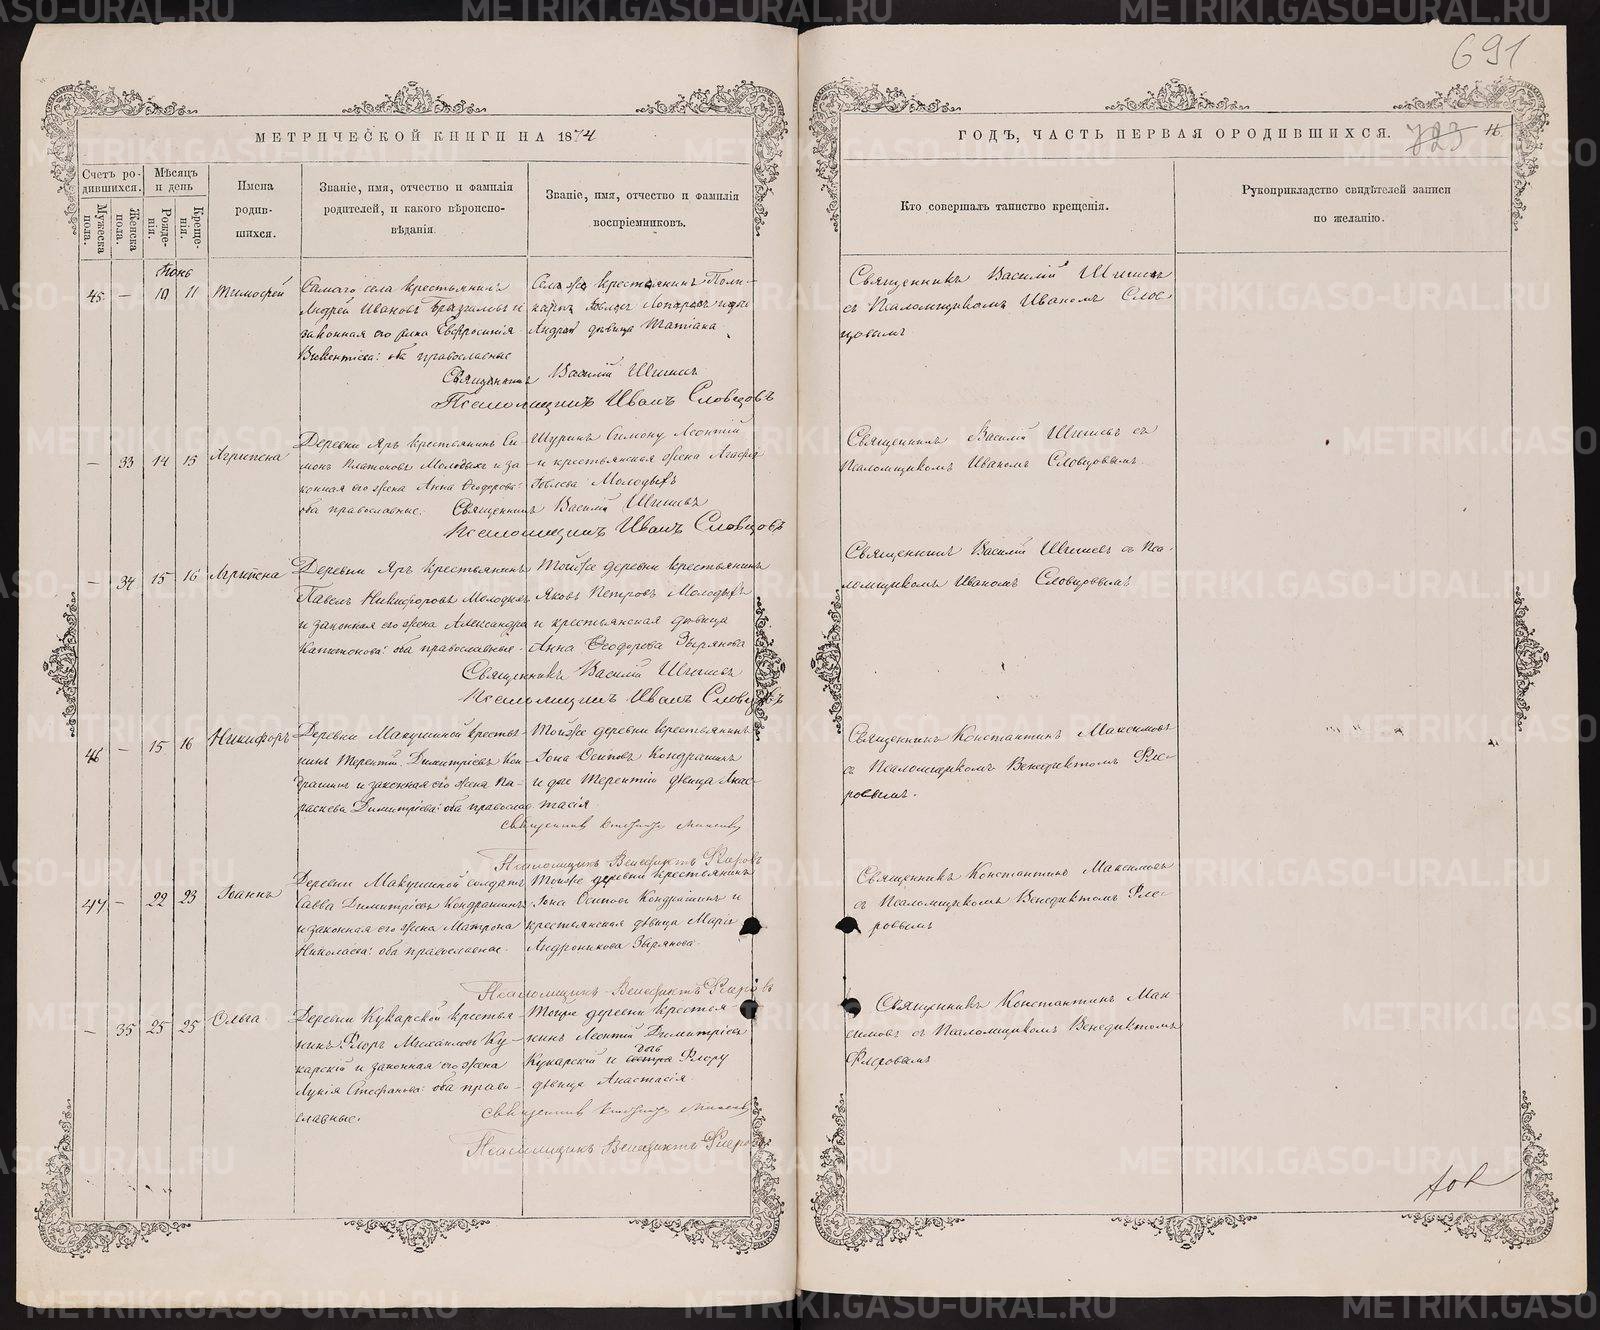 691
МЕТРИЧЕСКОЙ КНИГИ НА 1874
ГОДЪ, ЧАСТЬ ПЕРВАЯ О РОДИВШИХСЯ. 723 16.
Счетъ родившихся.
Мужеска пола.
Женска пола.
Мѣсяцъ и день
Рожденія.
Крещенія.
Имена родившихся.
Званіе, имя, отчество и фамилія родителей, и какого вѣроисповѣданія.
Званіе, имя, отчество и фамилія воспріемниковъ.
Кто совершалъ таинство крещенія.
Рукоприкладство свидѣтелей записи по желанію.
Іюнь
45 — 10 11 Тимофей
Самаго села крестьянинъ
Андрей Ивановъ и
законная его жена Евфросинія
оба православные
крестьянинъ
дѣвица Татіана
Священникъ Василій
Псаломщикъ Иванъ Словцовъ
Священникъ Василій
съ Псаломщикомъ Иваномъ Слов-
цовымъ
— 33 14 15 Агрипена
Деревни Яръ крестьянинъ Си-
монъ Платоновъ Молодыхъ и за-
конная его жена Анна Ѳеодорова:
оба православные.
Шуринъ Симону Леонтій
и крестьянская жена Агафія
Молодыхъ
Священникъ Василій
Псаломщикъ Иванъ Словцовъ
Священникъ Василій съ
Псаломщикомъ Иваномъ Словцовымъ.
— 34 15 16 Агрипена
Деревни Яръ крестьянинъ
Павелъ Никифоровъ Молодыхъ
и законная его жена Александра
Капитонова: оба православные.
Тойже деревни крестьянинъ
Яковъ Петровъ Молодыхъ
и крестьянская дѣвица
Анна Ѳеодорова Зырянова
Священникъ Василій
Псаломщикъ Иванъ Словцовъ
Священникъ Василій съ Пса-
ломщикомъ Иваномъ Словцовымъ
46 — 15 16 Никифоръ
Деревни Макушиной крестья-
нинъ Терентій Димитріевъ Кон-
драшинъ и законная его жена Па-
раскева Димитріева: оба православ
Тойже деревни крестьянинъ
Іона Осиповъ Кондрашинъ
и Терентій дѣвица Анас-
тасія
Псаломщикъ Венедиктъ Флеровъ
Священникъ Константинъ Максимовъ
съ Псаломщикомъ Венедиктомъ Фле-
ровымъ.
47 — 22 23 Іоаннъ
Деревни Макушиной солдатъ
Савва Димитріевъ Кондрашинъ
и законная его жена Матрона
Николаева: оба православные.
Тойже деревни крестьянинъ
Іона Осиповъ Кондрашинъ и
крестьянская дѣвица Марія
Андроникова Зырянова.
Псаломщикъ Венедиктъ Флеровъ
Священникъ Константинъ Максимовъ
съ Псаломщикомъ Венедиктомъ Фле-
ровымъ
— 35 25 25 Ольга
Деревни Кукарской крестья-
нинъ Флоръ Михаиловъ Ку-
карскій и законная его жена
Лукія Стефанова: оба право-
славные.
Тойже деревни крестья
нинъ Леонтій Димитріевъ
Кукарскій и дочь Флору
дѣвица Анастасія.
Псаломщикъ Венедиктъ Флеровъ
Священникъ Константинъ Мак-
симовъ съ Псаломщикомъ Венедиктомъ
Флеровымъ
METRIKI.GASO-URAL.RU